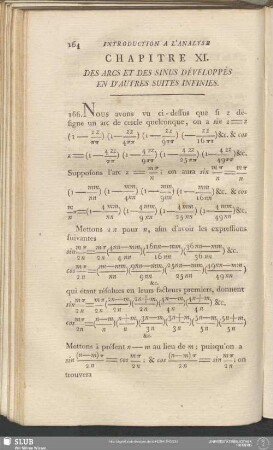 264 INTRODUCTION A L'ANALYSE
CHAPITRE XI.
DES ARCS ET DES SINUS DÉVELOPPÉS
EN D'AUTRES SUITES INFINIES.
166. Nous avons vu ci-dessus que si z dé-
signe un arc de cercle quelconque, on a sin z = z
(1 - zz/ππ) (1 - zz/4ππ) (1 - zz/9ππ) (1 - zz/16ππ) &c. & cos
z = (1 - 4zz/ππ) (1 - 4zz/9ππ) (1 - 4zz/25ππ) (1 - 4zz/49ππ) &c.
Supposons l'arc z = mπ/n; on aura sin mπ/n = mπ/n
(1 - mm/nn) (1 - mm/4nn) (1 - mm/9nn) (1 - mm/16nn) &c. & cos
mπ/n = (1 - 4mm/nn) (1 - 4mm/9nn) (1 - 4mm/25nn) (1 - 4mm/49nn) &c.
Mettons 2n pour n, afin d'avoir les expressions
suivantes
sin mπ/2n = mπ/2n (4nn-mm/4nn) (16nn-mm/16nn) (36nn-mm/36nn) &c.
cos mπ/2n = (nn-mm/nn) (9nn-mm/9nn) (25nn-mm/25nn) (49nn-mm/49nn)
&c.
qui étant résolues en leurs facteurs premiers, donnent
sin mπ/2n = mπ/2n (2n-m/2n) (2n+m/2n) (4n-m/4n) (4n+m/4n) &c.
cos mπ/2n = (n-m/n) (n+m/n) (3n-m/3n) (3n+m/3n) (5n-m/5n) (5n+m/5n)
&c.
Mettons à présent n-m au lieu de m; puisqu'on a
sin (n-m)π/2n = cos mπ/2n; & cos (n-m)π/2n = sin mπ/2n; on
trouvera
SLUB